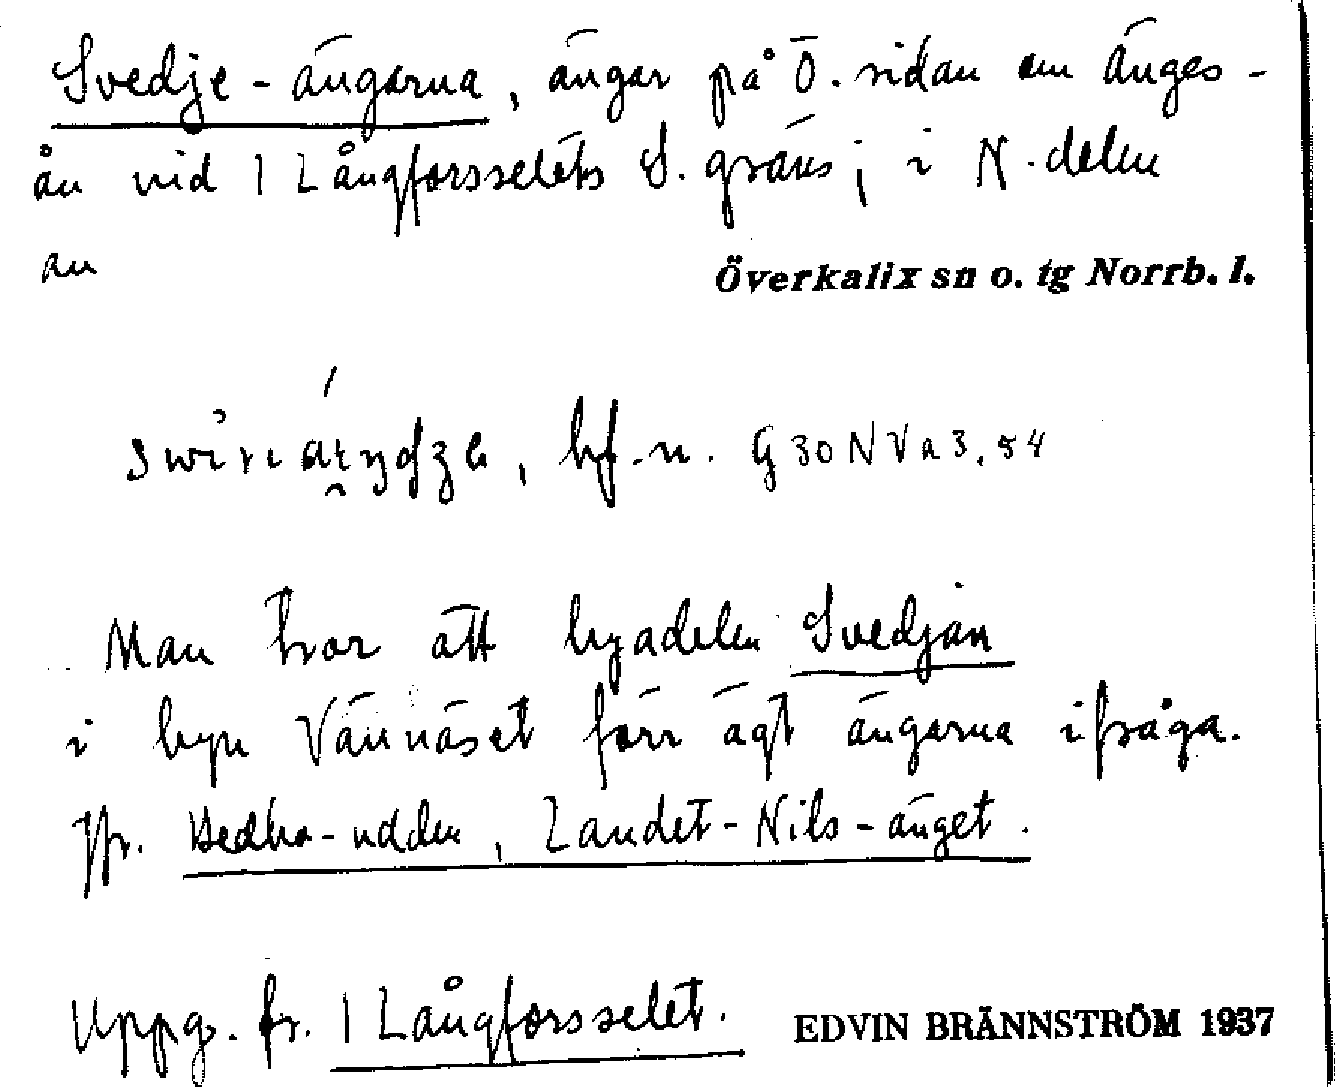 Svedje-ängarna, ängar på Ö. sidan om Änges-
ån vid 1 Långforsselets S. gräns; i N. delen
av
Överkalix sn o. tg Norrb. l.
, bf. n. G 30 N V a 3, 54
Man tror att byadelen Svedjan
i byn Vännäset förr ägt ängarna ifråga.
Jfr. Bedha-udden, Landet-Nils-änget.
Uppg. fr. 1 Långforsselet.
EDVIN BRÄNNSTRÖM 1937